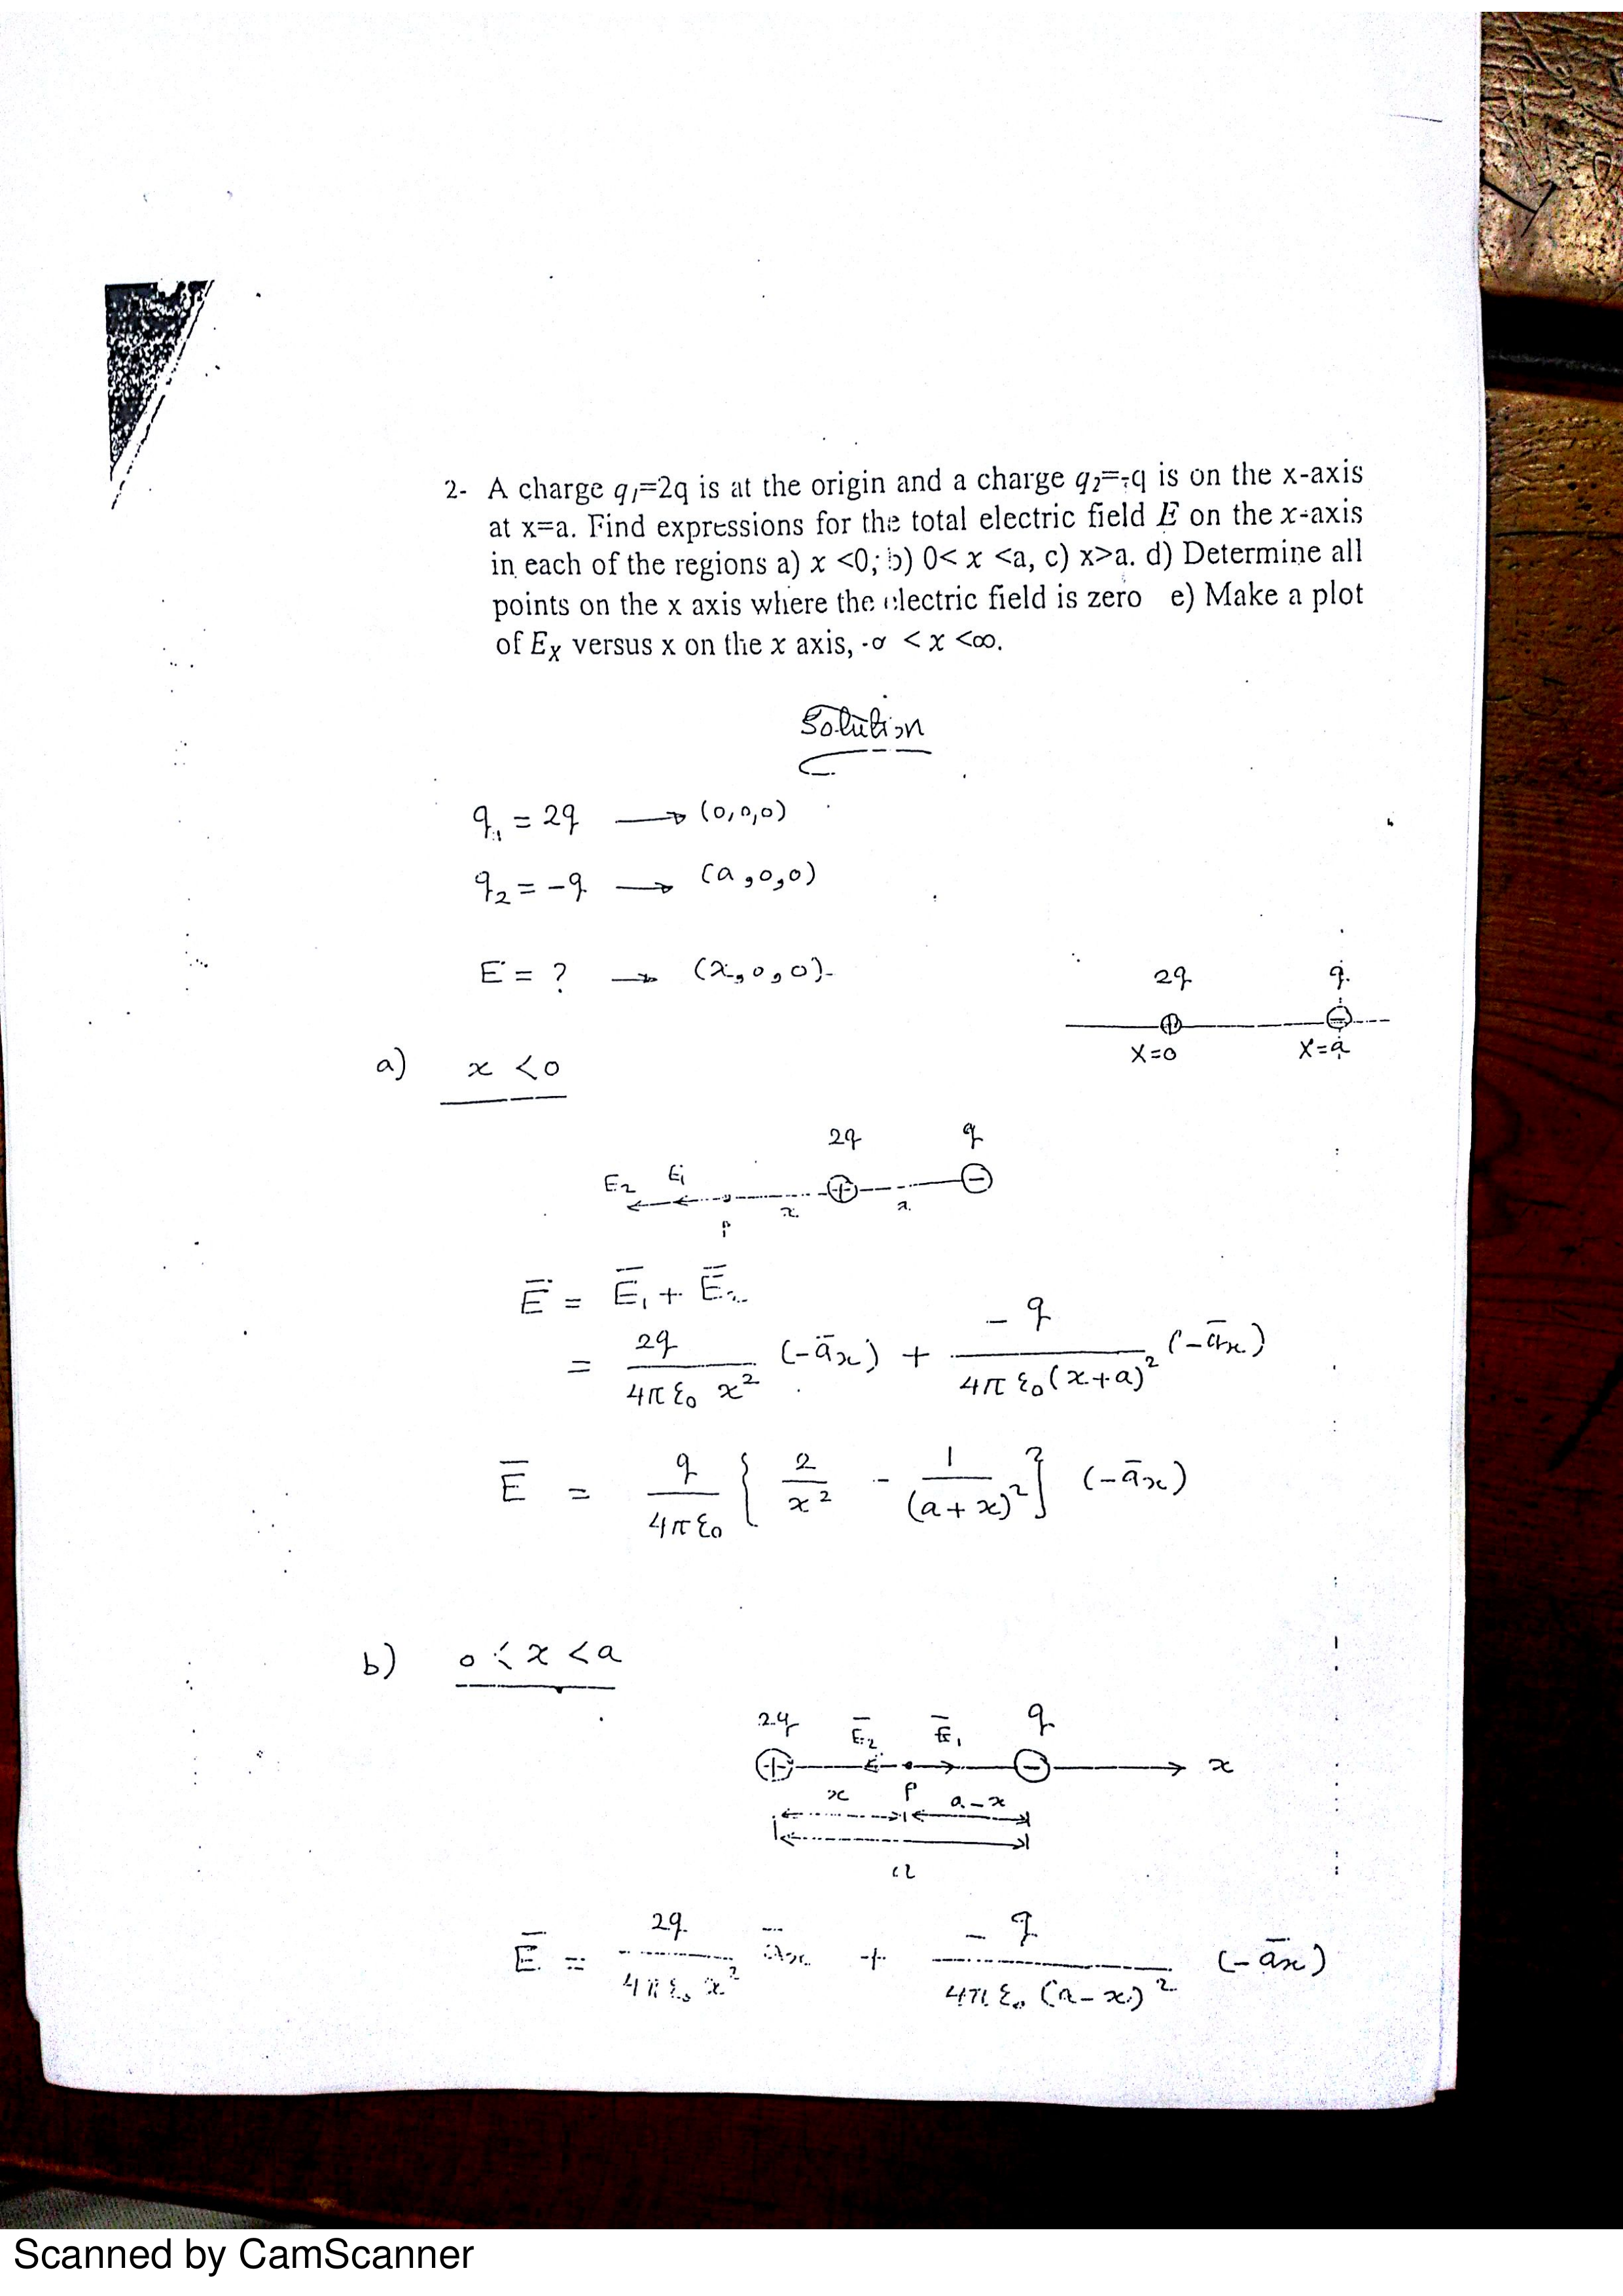 2- A charge q₁=2q is at the origin and a charge q₂=-q is on the x-axis
at x=a. Find expressions for the total electric field E on the x-axis
in each of the regions a) x <0; b) 0< x <a, c) x>a. d) Determine all
points on the x axis where the electric field is zero e) Make a plot
of Eₓ versus x on the x axis, -∞ < x <∞.
Solution
q₁ = 2q → (0,0,0)
q₂ = -q → (a,0,0)
E = ? → (x,0,0)
2q q
X=0 X=a
a) x <0
2q q
E₂ E₁
x
P
Ē = Ē₁ + Ē₂
= 2q / 4πε₀ x² (-āx) + -q / 4πε₀(x+a)² (-āx)
Ē = q / 4πε₀ { 2/x² - 1/(a+x)² } (-āx)
b) 0 < x < a
2q Ē₂ Ē₁ q
x
x P a-x
a
Ē = 2q / 4πε₀ x² āx + -q / 4πε₀ (a-x)² (-āx)
Scanned by CamScanner